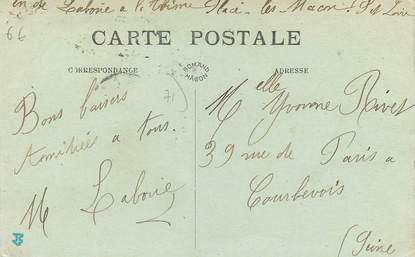 en de Laborie a l'Usine Placé - les Macon. S et Loire
66
CARTE POSTALE
CORRESPONDANCE
ADRESSE
BOMAND
MACON
71
Bons baisers
Amitiées a tous.
M Laborie
Melle Yvonne Rivet
39 rue de Paris a
Courbevois
(Seine